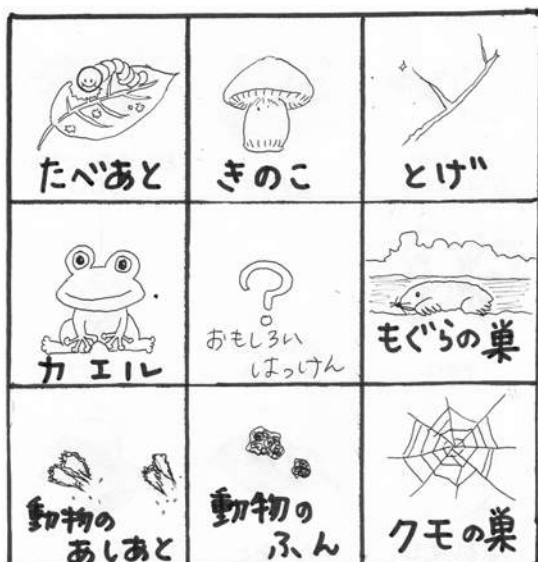 たべあと
きのこ
とげ
カエル
?
おもしろい
はっけん
もぐらの巣
動物の
あしあと
動物の
ふん
クモの巣